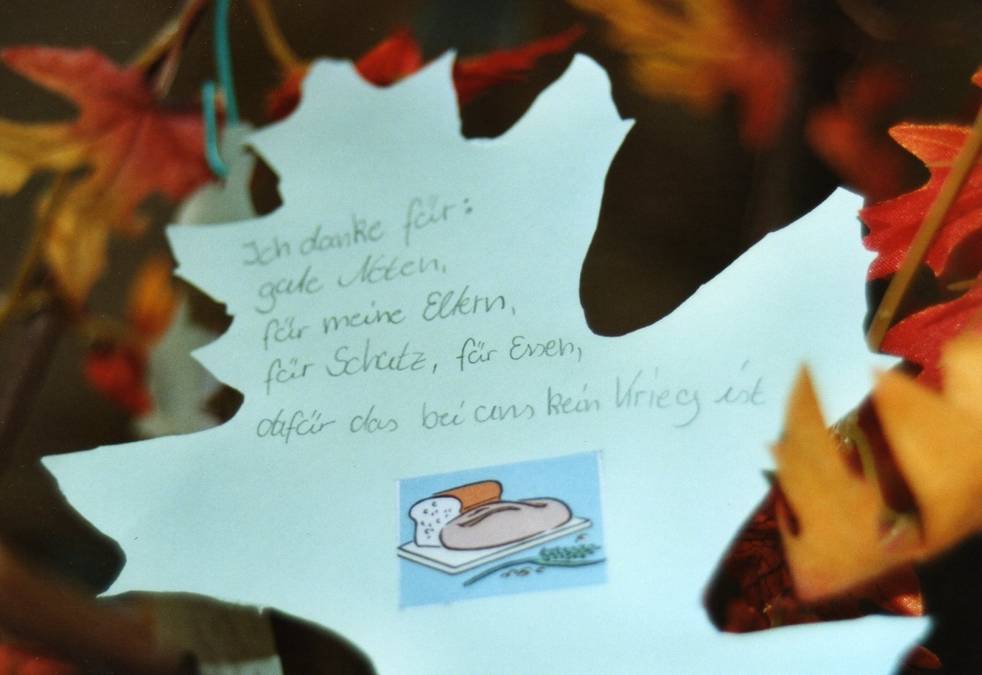 Ich danke für:
gute Noten,
für meine Eltern,
für Schutz, für Essen,
dafür das bei uns kein Krieg ist